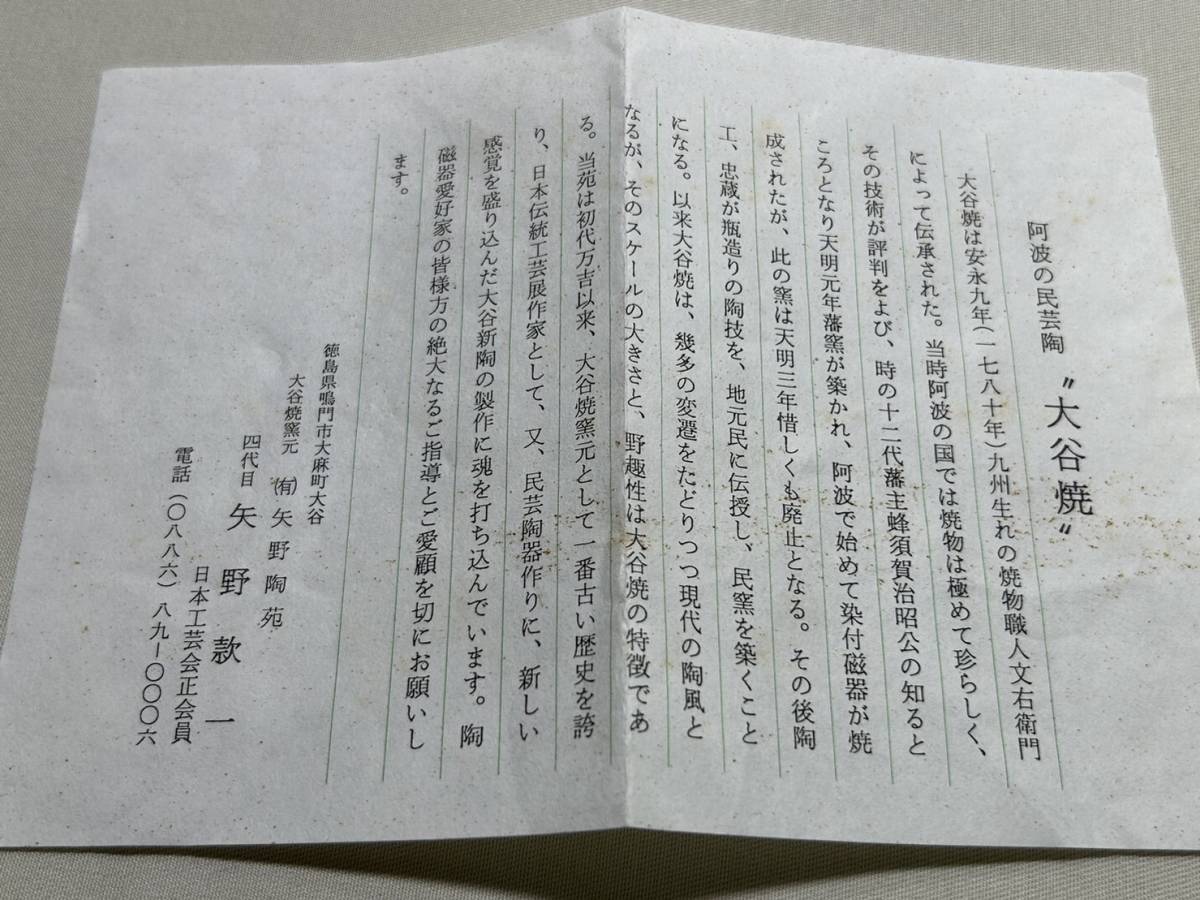 阿波の民芸陶 〝大谷焼〟
大谷焼は安永九年(一七八十年)九州生れの焼物職人文右衛門
によって伝承された。当時阿波の国では焼物は極めて珍らしく、
その技術が評判をよび、時の十二代藩主蜂須賀治昭公の知ると
ころとなり天明元年藩窯が築かれ、阿波で始めて染付磁器が焼
成されたが、此の窯は天明三年惜しくも廃止となる。その後陶
工、忠蔵が瓶造りの陶技を、地元民に伝授し、民窯を築くこと
になる。以来大谷焼は、幾多の変遷をたどりつつ現代の陶風と
なるが、そのスケールの大きさと、野趣性は大谷焼の特徴であ
る。当苑は初代万吉以来、大谷焼窯元として一番古い歴史を誇
り、日本伝統工芸展作家として、又、民芸陶器作りに、新しい
感覚を盛り込んだ大谷新陶の製作に魂を打ち込んでいます。陶
磁器愛好家の皆様方の絶大なるご指導とご愛顧を切にお願いし
ます。
徳島県鳴門市大麻町大谷
大谷焼窯元 ㈲矢野陶苑
四代目 矢野款一
日本工芸会正会員
電話(〇八八六)八九-〇〇〇六